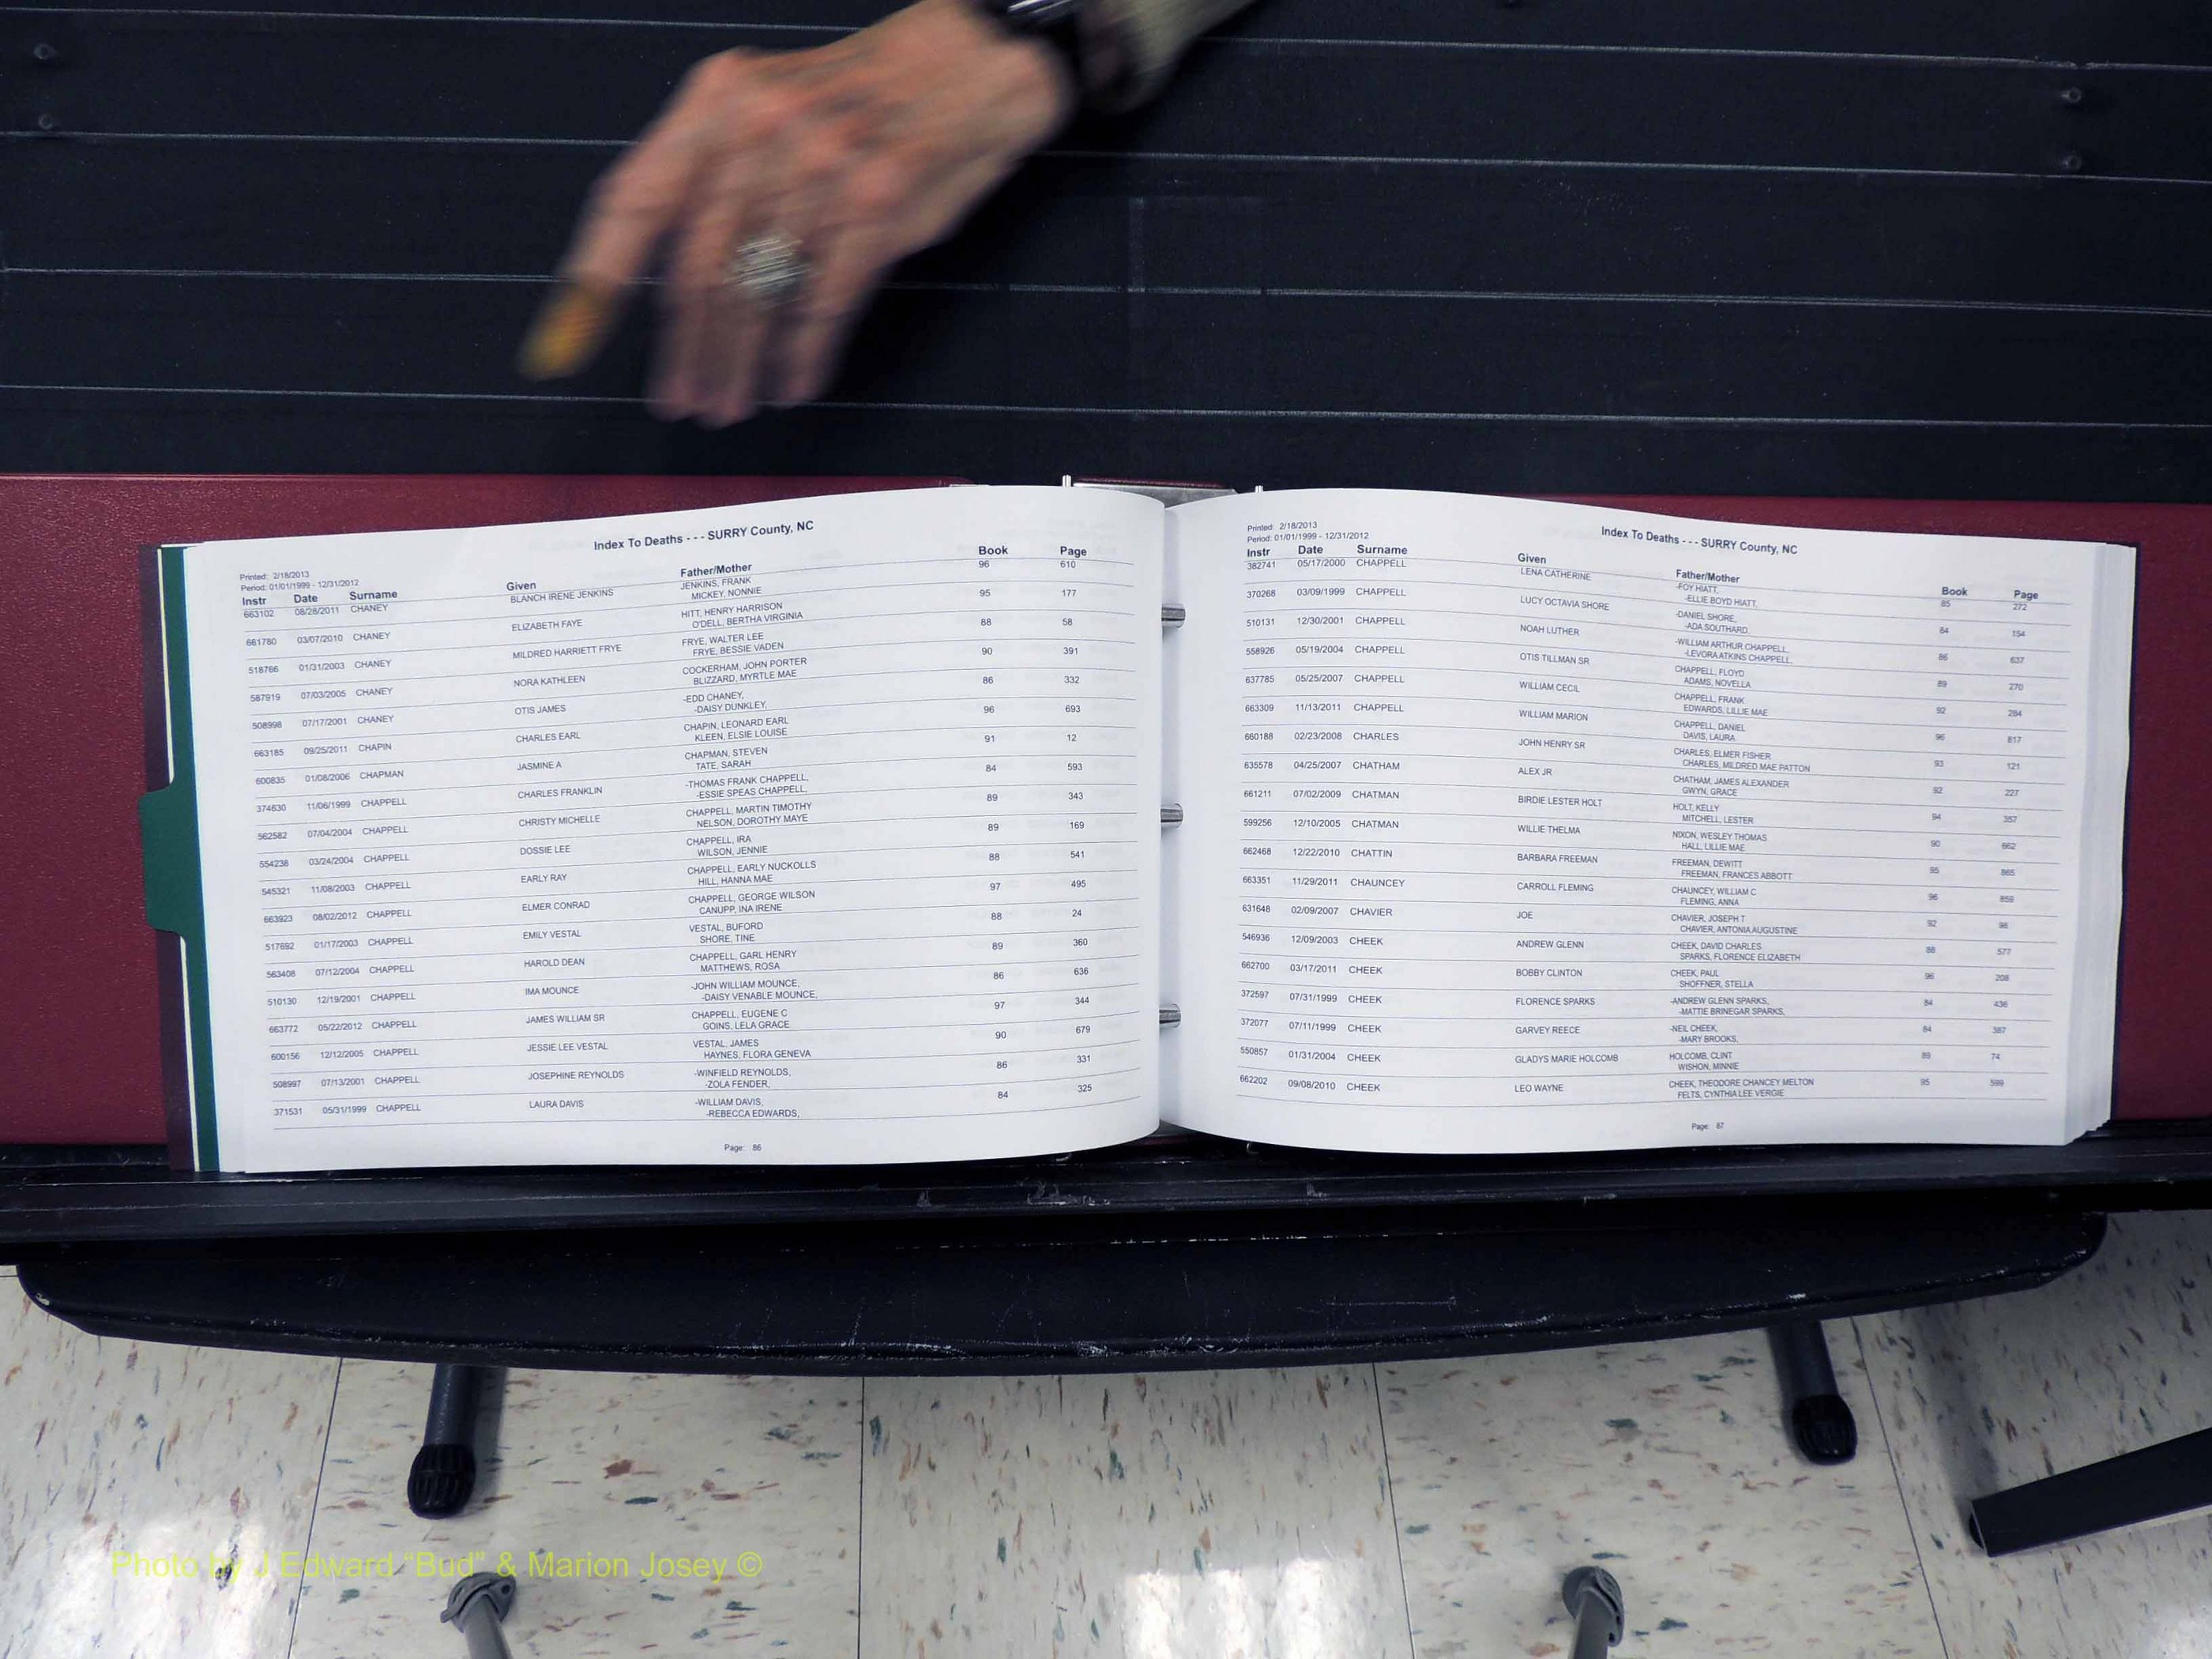 Index To Deaths - - - SURRY County, NC
Printed: 2/18/2013
Period: 01/01/1999 - 12/31/2012
Instr Date Surname Given Father/Mother Book Page
663102 08/28/2011 CHANEY BLANCH IRENE JENKINS JENKINS, FRANK 96 610
MICKEY, NONNIE
661780 03/07/2010 CHANEY ELIZABETH FAYE HITT, HENRY HARRISON 95 177
O'DELL, BERTHA VIRGINIA
518766 01/31/2003 CHANEY MILDRED HARRIETT FRYE FRYE, WALTER LEE 88 58
FRYE, BESSIE VADEN
587919 07/03/2005 CHANEY NORA KATHLEEN COCKERHAM, JOHN PORTER 90 391
BLIZZARD, MYRTLE MAE
508998 07/17/2001 CHANEY OTIS JAMES -EDD CHANEY, 86 332
-DAISY DUNKLEY,
663185 09/25/2011 CHAPIN CHARLES EARL CHAPIN, LEONARD EARL 96 693
KLEEN, ELSIE LOUISE
600835 01/08/2006 CHAPMAN JASMINE A CHAPMAN, STEVEN 91 12
TATE, SARAH
374630 11/06/1999 CHAPPELL CHARLES FRANKLIN -THOMAS FRANK CHAPPELL, 84 593
-ESSIE SPEAS CHAPPELL,
562582 07/04/2004 CHAPPELL CHRISTY MICHELLE CHAPPELL, MARTIN TIMOTHY 89 343
NELSON, DOROTHY MAYE
554238 03/24/2004 CHAPPELL DOSSIE LEE CHAPPELL, IRA 89 169
WILSON, JENNIE
545321 11/08/2003 CHAPPELL EARLY RAY CHAPPELL, EARLY NUCKOLLS 88 541
HILL, HANNA MAE
663923 08/02/2012 CHAPPELL ELMER CONRAD CHAPPELL, GEORGE WILSON 97 495
CANUPP, INA IRENE
517692 01/17/2003 CHAPPELL EMILY VESTAL VESTAL, BUFORD 88 24
SHORE, TINE
563408 07/12/2004 CHAPPELL HAROLD DEAN CHAPPELL, GARL HENRY 89 360
MATTHEWS, ROSA
510130 12/19/2001 CHAPPELL IMA MOUNCE -JOHN WILLIAM MOUNCE, 86 636
-DAISY VENABLE MOUNCE,
663772 05/22/2012 CHAPPELL JAMES WILLIAM SR CHAPPELL, EUGENE C 97 344
GOINS, LELA GRACE
600156 12/12/2005 CHAPPELL JESSIE LEE VESTAL VESTAL, JAMES 90 679
HAYNES, FLORA GENEVA
508997 07/13/2001 CHAPPELL JOSEPHINE REYNOLDS -WINFIELD REYNOLDS, 86 331
-ZOLA FENDER,
371531 05/31/1999 CHAPPELL LAURA DAVIS -WILLIAM DAVIS, 84 325
-REBECCA EDWARDS,
Page: 86
Printed: 2/18/2013
Period: 01/01/1999 - 12/31/2012
Index To Deaths - - - SURRY County, NC
Instr Date Surname Given Father/Mother Book Page
382741 05/17/2000 CHAPPELL LENA CATHERINE -FOY HIATT, 85 272
-ELLIE BOYD HIATT,
370268 03/09/1999 CHAPPELL LUCY OCTAVIA SHORE -DANIEL SHORE, 84 154
-ADA SOUTHARD,
510131 12/30/2001 CHAPPELL NOAH LUTHER -WILLIAM ARTHUR CHAPPELL, 86 637
-LEVORA ATKINS CHAPPELL,
558926 05/19/2004 CHAPPELL OTIS TILLMAN SR CHAPPELL, FLOYD 89 270
ADAMS, NOVELLA
637785 05/25/2007 CHAPPELL WILLIAM CECIL CHAPPELL, FRANK 92 284
EDWARDS, LILLIE MAE
663309 11/13/2011 CHAPPELL WILLIAM MARION CHAPPELL, DANIEL 96 817
DAVIS, LAURA
660188 02/23/2008 CHARLES JOHN HENRY SR CHARLES, ELMER FISHER 93 121
CHARLES, MILDRED MAE PATTON
635578 04/25/2007 CHATHAM ALEX JR CHATHAM, JAMES ALEXANDER 92 227
GWYN, GRACE
661211 07/02/2009 CHATMAN BIRDIE LESTER HOLT HOLT, KELLY 94 357
MITCHELL, LESTER
599256 12/10/2005 CHATMAN WILLIE THELMA NIXON, WESLEY THOMAS 90 662
HALL, LILLIE MAE
662468 12/22/2010 CHATTIN BARBARA FREEMAN FREEMAN, DEWITT 95 865
FREEMAN, FRANCES ABBOTT
663351 11/29/2011 CHAUNCEY CARROLL FLEMING CHAUNCEY, WILLIAM C 96 859
FLEMING, ANNA
631648 02/09/2007 CHAVIER JOE CHAVIER, JOSEPH T 92 98
CHAVIER, ANTONIA AUGUSTINE
546936 12/09/2003 CHEEK ANDREW GLENN CHEEK, DAVID CHARLES 88 577
SPARKS, FLORENCE ELIZABETH
662700 03/17/2011 CHEEK BOBBY CLINTON CHEEK, PAUL 96 208
SHOFFNER, STELLA
372597 07/31/1999 CHEEK FLORENCE SPARKS -ANDREW GLENN SPARKS, 84 436
-MATTIE BRINEGAR SPARKS,
372077 07/11/1999 CHEEK GARVEY REECE -NEIL CHEEK, 84 387
-MARY BROOKS,
550857 01/31/2004 CHEEK GLADYS MARIE HOLCOMB HOLCOMB, CLINT 89 74
WISHON, MINNIE
662202 09/08/2010 CHEEK LEO WAYNE CHEEK, THEODORE CHANCEY MELTON 95 599
FELTS, CYNTHIA LEE VERGIE
Page: 87
Photo by J Edward “Bud” & Marion Josey ©